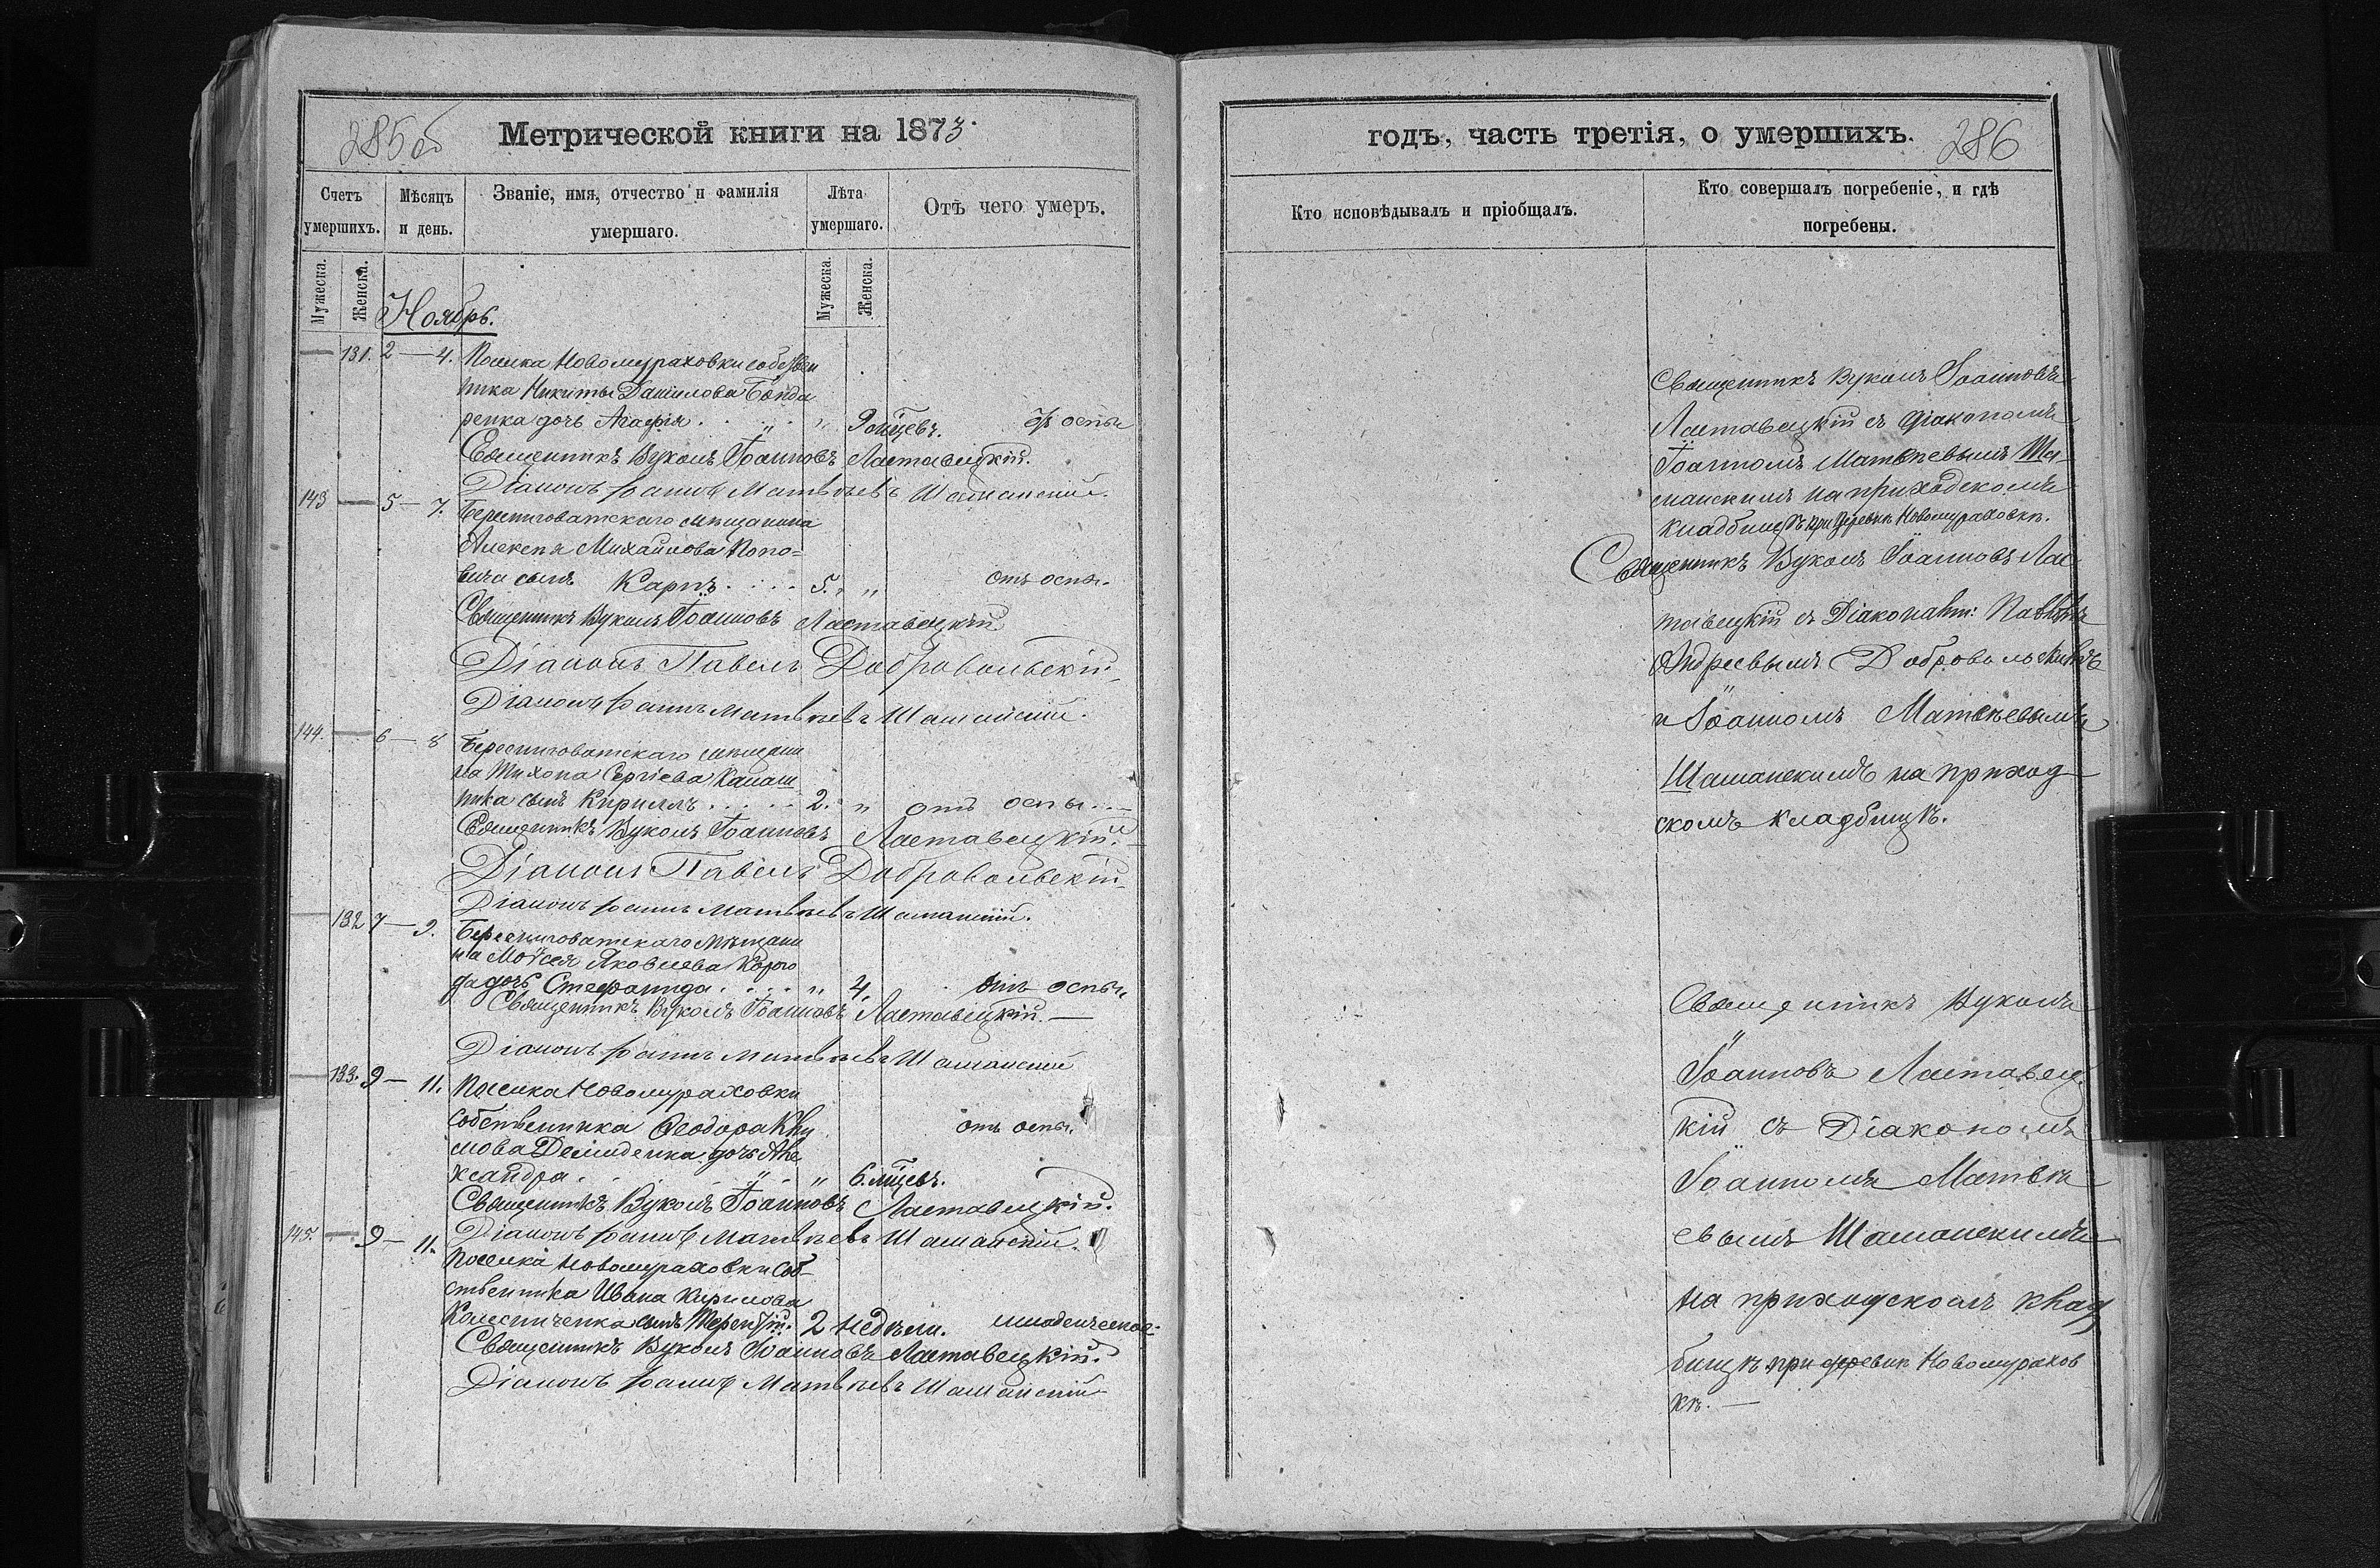 285об
Метрической книги на 1873.
Счетъ умершихъ.
Мѣсяцъ и день.
Званіе, имя, отчество и фамилія умершаго.
Лѣта умершаго.
Отъ чего умеръ.
Мужеска.
Женска.
Мужеска.
Женска.
Ноябрь.
— 131. 2 — 4. Поселка Новомураховки собствен
ника Никиты Данилова Бонда
ренка дочь Агафія . . . „ 9 мѣсцевъ. отъ оспы
Священникъ Вуколъ Іоанновъ Ластавецкій.
Діаконъ Іоаннъ Матвѣевъ Шаманскій.
143 — 5 — 7. Берестоватскаго мѣщанина
Алексея Михайлова Попо=
вича сынъ Карпъ . . . . 5. „ отъ оспы.
Священникъ Вуколъ Іоанновъ Ластавецкій
Діаконъ Павелъ Добровольскій
Діаконъ Іоаннъ Матвѣевъ Шаманскій.
144. — 6 — 8 Берестоватскаго мѣщани
на Тихона Сергіева
ника сынъ Кириллъ . . . . 2. „ отъ оспы. —
Священникъ Вуколъ Іоанновъ Ластавецкій. —
Діаконъ Павелъ Добровольскій
Діаконъ Іоаннъ Матвѣевъ Шаманскій.
— 132 7 — 9. Берестоватскаго мѣщани
на Мойсея Яковлева
да дочь Стефанида . . . . „ 4. отъ оспы.
Священникъ Вуколъ Іоанновъ Ластавецкій. —
Діаконъ Іоаннъ Матвѣевъ Шаманскій
— 133. 9 — 11. Поселка Новомураховки
собственника Ѳеодора
мова Демиденка дочь Але
ксандра . . . „ 6. мѣсцевъ. отъ оспы.
Священникъ Вуколъ Іоанновъ Ластавецкій.
Діаконъ Іоаннъ Матвѣевъ Шаманскій.
145. — 9 — 11. Поселка Новомураховки соб-
ственника Ивана Кирилова
сынъ Терентій. 2 недѣли. младенческое.
Священникъ Вуколъ Іоанновъ Ластавецкій.
Діаконъ Іоаннъ Матвѣевъ Шаманскій
годъ, часть третія, о умершихъ.
286
Кто исповѣдывалъ и пріобщалъ.
Кто совершалъ погребеніе, и гдѣ погребены.
Священникъ Вуколъ Іоанновъ
Ластавецкій съ діакономъ
Іоанномъ Матвѣевымъ Ша-
манскимъ на приходскомъ
кладбищѣ при деревнѣ Новомураховкѣ.
Священникъ Вуколъ Іоанновъ Лас
тавецкій съ Діаконами: Павломъ
Андреевымъ Добровольскимъ
и Іоанномъ Матвѣевымъ
Шаманскимъ на приход
скомъ кладбищѣ.
Священникъ Вуколъ
Іоанновъ Ластавец
кій съ Діакономъ
Іоанномъ Матвѣ
евымъ Шаманскимъ
на приходскомъ клад
бищѣ при деревнѣ Новомурахов
кѣ. —